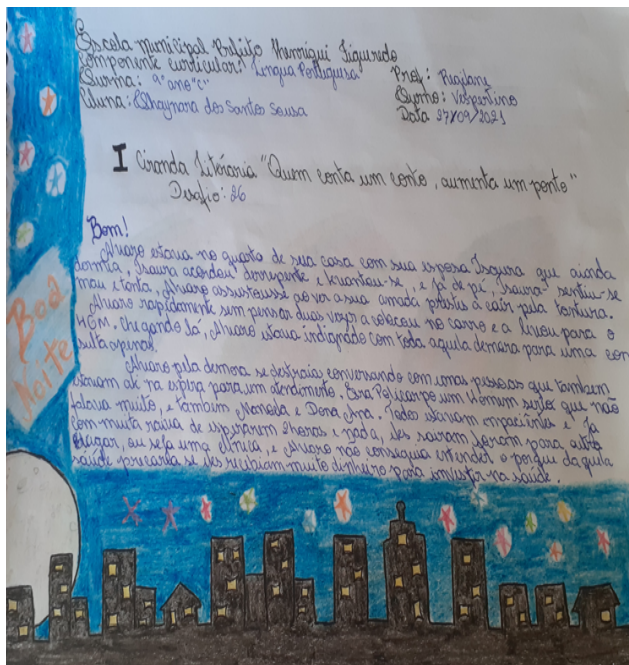 Escola municipal Brefeito Henrique Figuredo
Componente curricular: Língua Portuguesa
Prof: Regilane
Turma: 9º ano "c"
Turno: Vespertino
Aluna: Thaynara dos Santos Sousa
Data 27/09/2021
I Ciranda Literária "Quem conta um conto, aumenta um ponto"
Desafio: 26
Bom!
Alvaro estava no quarto de sua casa com sua esposa Isaura que ainda
dormia, Isaura acordou derrepente e levantou-se, e já de pé, Isaura sentiu-se
mau e tonta, Alvaro assustousse ao ver a sua amada prestis a cair pela tontura.
Alvaro rapidamente sem pensar duas vezes a colocou no carro e a levou para o
HGM. Chegando lá, Alvaro estava indignado com toda aquela demora para uma con
sulta apenas.
Alvaro pela demora se destraia conversando com umas pessoas que tambem
estavam ali na espera para um atendimento. Era Policarpo um Homem serio que não
falava muito, e tambem Manoela e Dona Ana. Todos estavam impaciêntes e já
com muita raiva de esperarem 2horas e nada, eles sairam foram para outro
lugar, ou seja uma clínica, e Alvaro não conseguia entender o porque daquela
saúde precaria se eles recebiam muito dinheiro para investir na saúde.
Boa
Noite